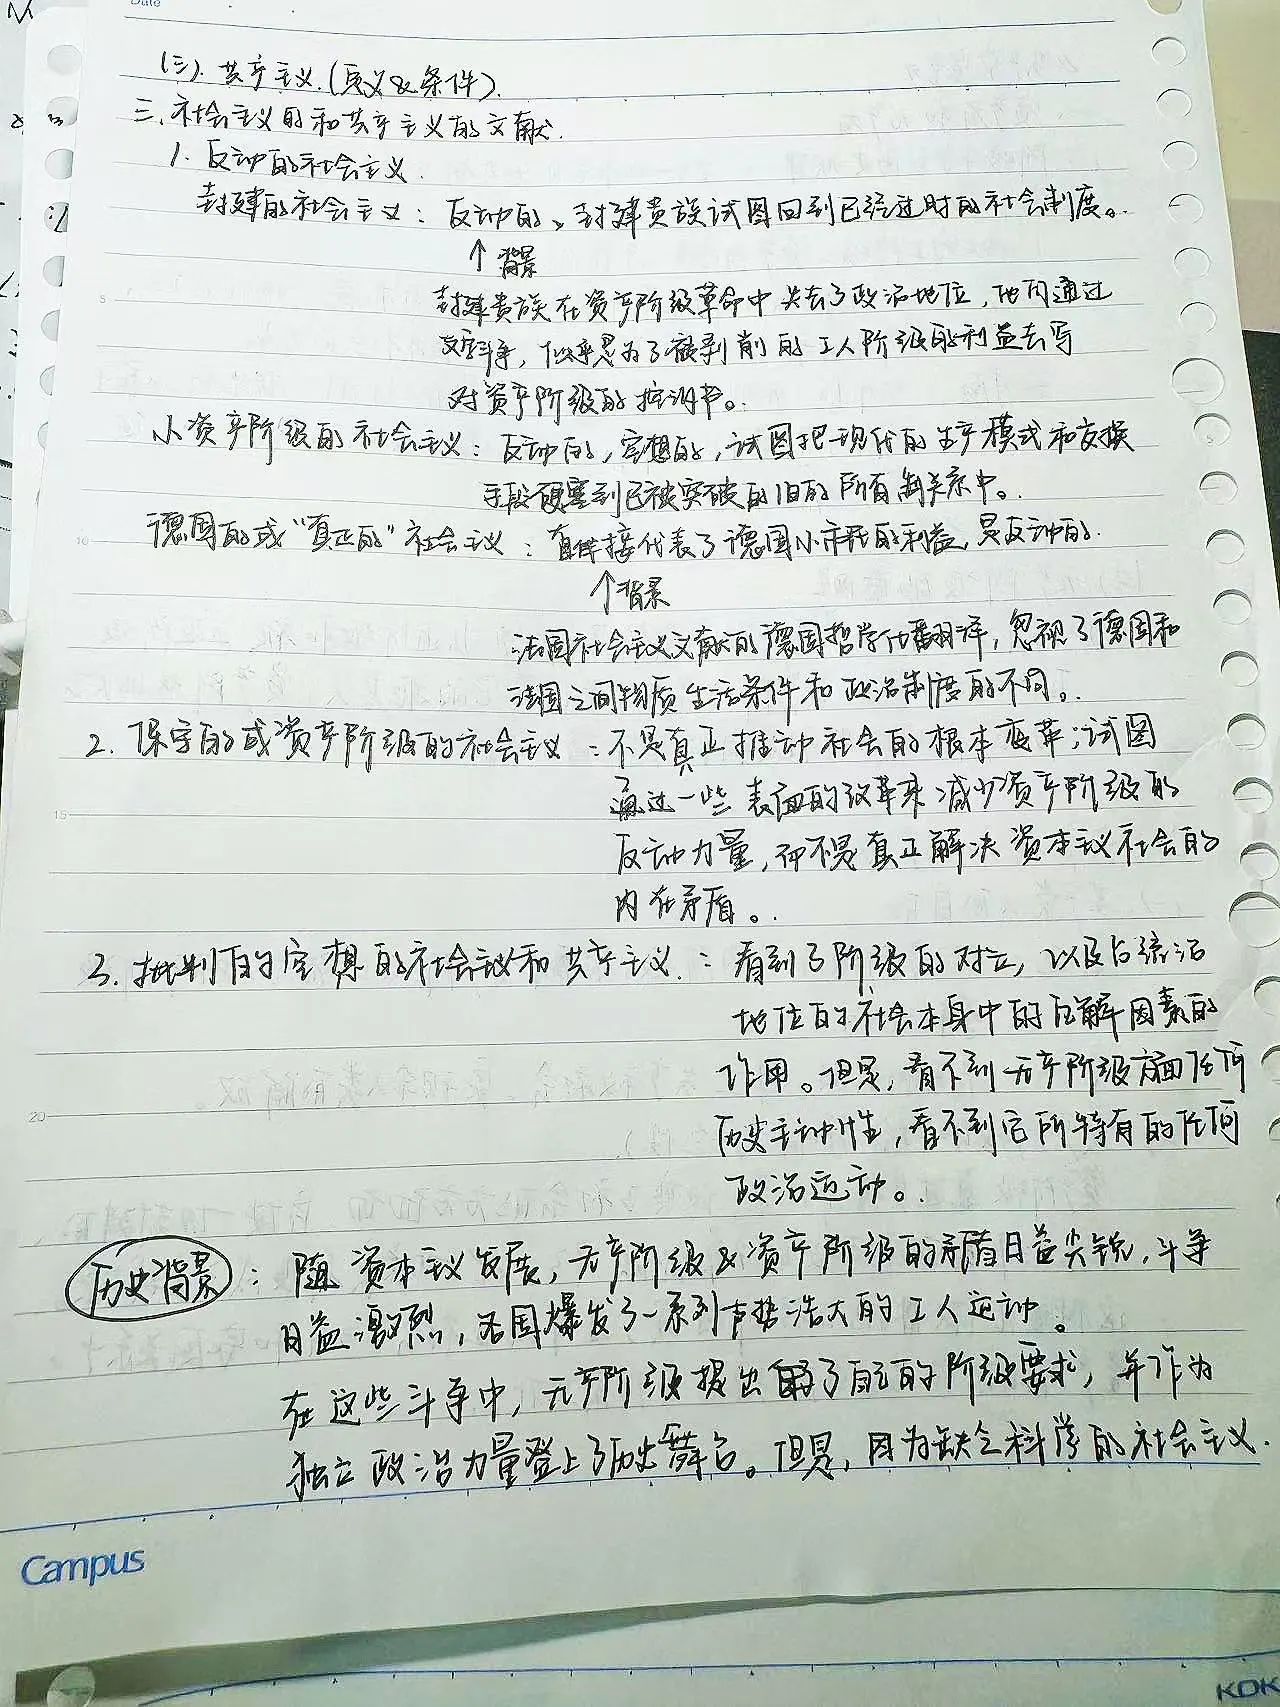 Date
(三). 共产主义.(定义&条件).
三.社会主义的和共产主义的文献.
1. 反动的社会主义.
封建的社会主义: 反动的、封建贵族试图回到已经过时的社会制度。
↑背景
封建贵族在资产阶级革命中失去了政治地位,他们通过
文字斗争,似乎是为了被剥削的工人阶级的利益去写
对资产阶级的控诉书。
小资产阶级的社会主义: 反动的,空想的,试图把现代的生产模式和交换
手段硬塞到已被突破的旧的所有制关系中。
德国的或“真正的”社会主义: 直接代表了德国小市民的利益,是反动的.
↑背景
法国社会主义文献的德国哲学化翻译,忽视了德国和
法国之间物质生活条件和政治制度的不同。
2. 保守的或资产阶级的社会主义: 不是真正推动社会的根本变革;试图
通过一些表面的改革来减少资产阶级的
反动力量,而不是真正解决资本主义社会的
内在矛盾。
3. 批判的空想的社会主义和共产主义.: 看到了阶级的对立,以及占统治
地位的社会本身中的瓦解因素的
作用。但是,看不到无产阶级方面任何
历史主动性,看不到它所特有的任何
政治运动。
历史背景: 随资本主义发展,无产阶级&资产阶级的矛盾日益尖锐,斗争
日益激烈,各国爆发了一系列声势浩大的工人运动。
在这些斗争中,无产阶级提出了自己的阶级要求,并作为
独立政治力量登上了历史舞台。但是,因为缺乏科学的社会主义.
Campus
KOK